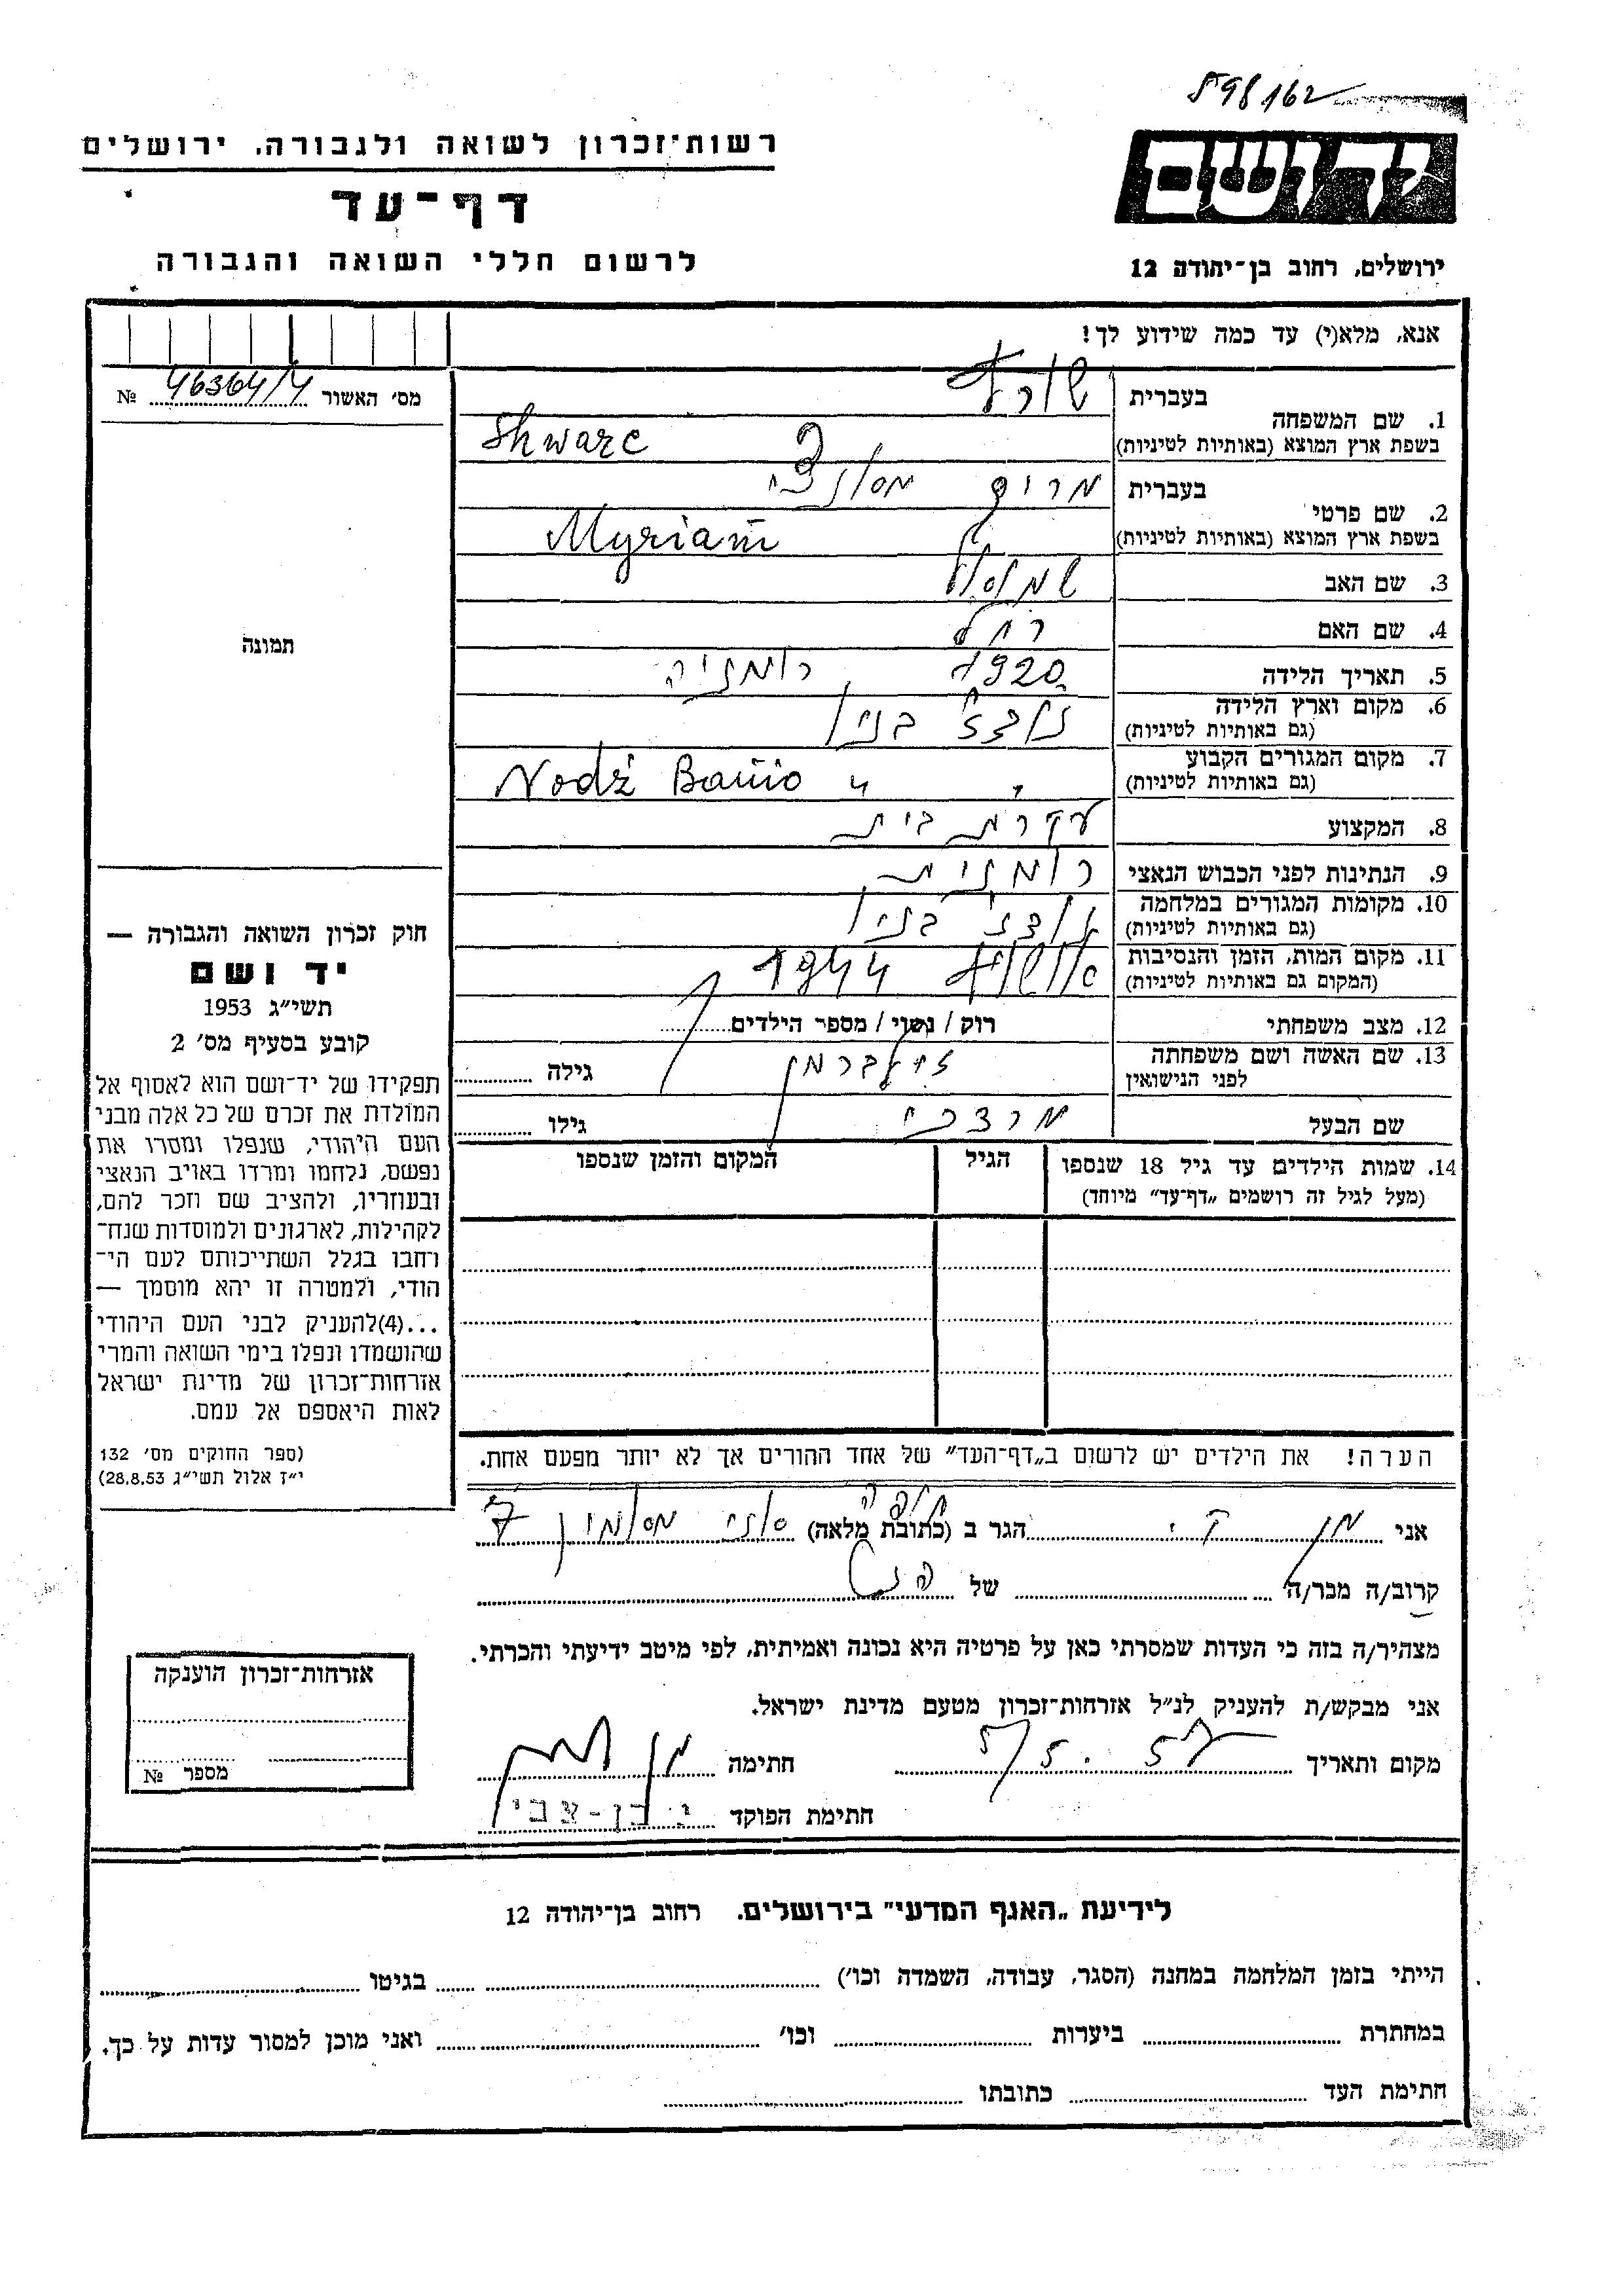 598162
רשות־זכרון לשואה ולגבורה. ירושלים
יד ושם
דף־עד
לרשום חללי השואה והגבורה
ירושלים, רחוב בן־יהודה 12
אנא, מלא(י) עד כמה שידוע לך!
מס׳ האשור № 46364/4
1. שם המשפחה
בעברית שורץ
בשפת ארץ המוצא (באותיות לטיניות) Shwarc
2. שם פרטי
בעברית מרים
בשפת ארץ המוצא (באותיות לטיניות) Myriam
3. שם האב שמואל
4. שם האם רחל
5. תאריך הלידה 1920 רומניה
6. מקום וארץ הלידה
(גם באותיות לטיניות)
7. מקום המגורים הקבוע
(גם באותיות לטיניות) " " Nodź Banio
8. המקצוע עקרת בית
9. הנתינות לפני הכבוש הנאצי רומנית
10. מקומות המגורים במלחמה
(גם באותיות לטיניות)
11. מקום המות, הזמן והנסיבות אושויץ 1944
(המקום גם באותיות לטיניות)
12. מצב משפחתי רוק / נשוי / מספר הילדים
13. שם האשה ושם משפחתה
לפני הנישואין זילברמן גילה
שם הבעל מרדכי גילו
14. שמות הילדים עד גיל 18 שנספו
(מעל לגיל זה רושמים „דף־עד” מיוחד)
הגיל
המקום והזמן שנספו
הערה! את הילדים יש לרשום ב„דף־העד” של אחד ההורים אך לא יותר מפעם אחת.
תמונה
חוק זכרון השואה והגבורה —
יד ושם
תשי״ג 1953
קובע בסעיף מס׳ 2
תפקידו של יד־ושם הוא לאסוף אל
המולדת את זכרם של כל אלה מבני
העם היהודי, שנפלו ומסרו את
נפשם, נלחמו ומרדו באויב הנאצי
ובעוזריו, ולהציב שם וזכר להם,
לקהילות, לארגונים ולמוסדות שנח־
רחבו בגלל השתייכותם לעם הי־
הודי, ולמטרה זו יהא מוסמך —
...(4)להעניק לבני העם היהודי
שהושמדו ונפלו בימי השואה והמרי
אזרחות־זכרון של מדינת ישראל
לאות היאספם אל עמם.
(ספר החוקים מס׳ 132
י״ז אלול תשי״ג 28.8.53)
אני מן הגר ב (כתובת מלאה) חיפה 7
קרוב/ה מכר/ה של
מצהיר/ה בזה כי העדות שמסרתי כאן על פרטיה היא נכונה ואמיתית, לפי מיטב ידיעתי והכרתי.
אני מבקש/ת להעניק לנ״ל אזרחות־זכרון מטעם מדינת ישראל.
מקום ותאריך חתימה
חתימת הפוקד י. בן-צבי
אזרחות־זכרון הוענקה
מספר №
לידיעת „האגף המדעי” בירושלים. רחוב בן־יהודה 12
הייתי בזמן המלחמה במחנה (הסגר, עבודה, השמדה וכו׳) בגיטו
במחתרת ביערות וכו׳ ואני מוכן למסור עדות על כך.
חתימת העד כתובתו